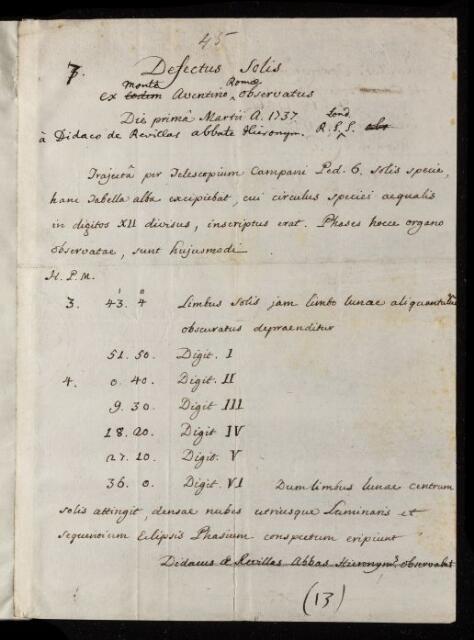 45
7. Defectus Solis
ex eodem monte Aventino Romæ observatus
Die primâ Martii A. 1737.
à Didaco de Revillas abbate Hieronym. R. S. Lond. S. obs
Trajectâ per Telescopium Campani Ped. 6. Solis specie,
hanc Tabella alba excipiebat, cui circulus speciei aequalis
in digitos XII divisus, inscriptus erat. Phases hocce organo
observatae, sunt hujusmodi
H. P. M.
3. 43. 4 Limbus Solis jam limbo lunae aliquantulum
obscuratus depraenditur
51. 50. Digit. I
4. 0. 40. Digit. II
9. 30. Digit III
18. 20. Digit IV
27. 10. Digit. V
36. 0. Digit. VI Dum limbus lunae centrum
Solis attingit, densae nubes utriusque Luminaris et
sequentium Eclipsis Phasium conspectum eripiunt
Didacus de Revillas Abbas Hieronym.s observabat
(13)